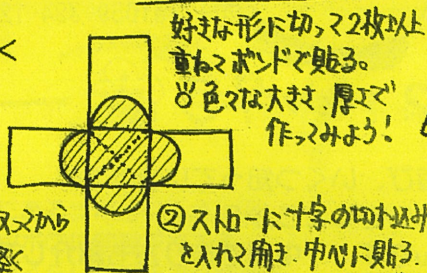 好きな形に切って2枚以上
重ねてボンドで貼る。
色々な大きさ、厚さで
作ってみよう!
く
ってから
②ストローに十字の切れ込み
を入れて開き、中心に貼る。